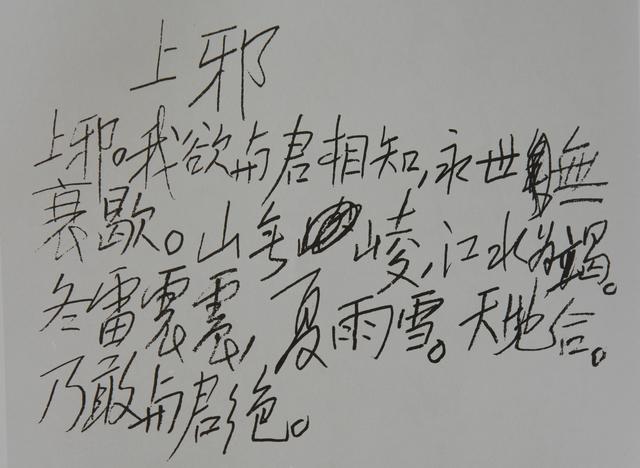 上邪
上邪。我欲与君相知,永世無
衰歇。山无峻,江水为竭。
冬雷震震,夏雨雪。天地合。
乃敢与君绝。